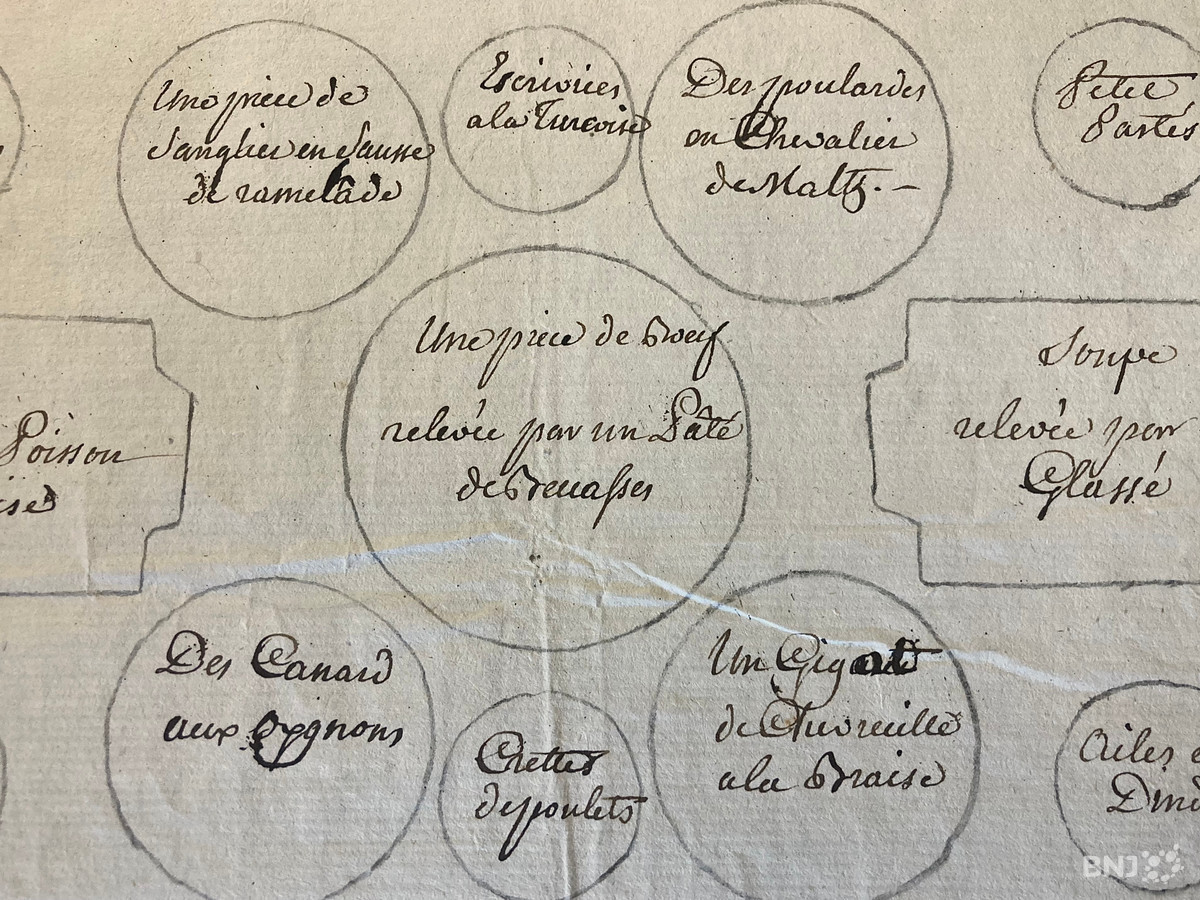 Une piece de
Sanglier en Sausse
de ramelade
Escrivices
a la Turcoise
Des poulardes
en Chevalier
de Malth. –
Petit
Pastés
Une piece de Boeuf
relevée par un Pâté
de Becasses
Poisson
Soupe
relevée par
Glassé
Des Canard
aux Oygnons
Crettes
de poulets
Un Gigot
de Chevreuille
a la Braise
Ailes
BNJ